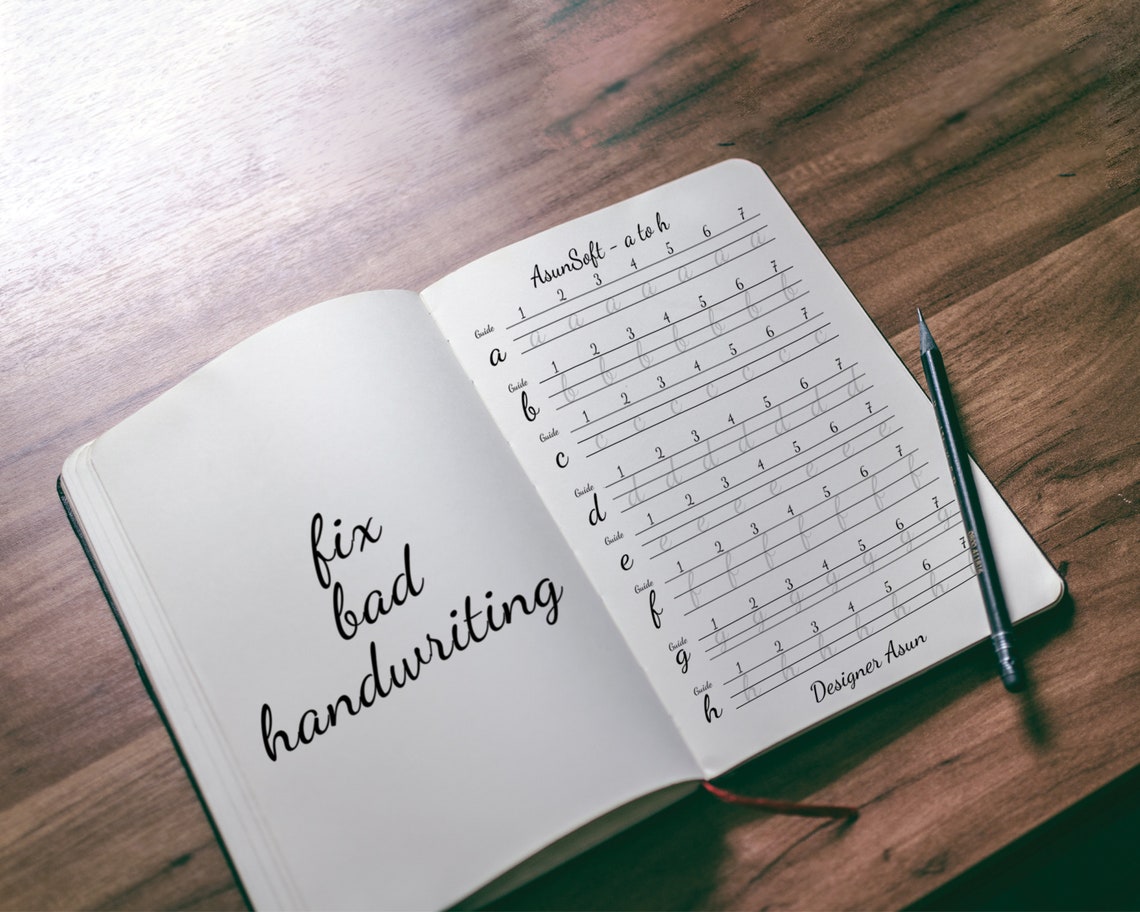 fix
bad
handwriting
AsunSoft - a to h
1 2 3 4 5 6 7
Guide
a a a a a a a a
1 2 3 4 5 6 7
Guide
b b b b b b b b
1 2 3 4 5 6 7
Guide
c c c c c c c c
1 2 3 4 5 6 7
Guide
d d d d d d d d
1 2 3 4 5 6 7
Guide
e e e e e e e e
1 2 3 4 5 6 7
Guide
f f f f f f f f
1 2 3 4 5 6 7
Guide
g g g g g g g g
1 2 3 4 5 6 7
Guide
h h h h h h h
Designer Asun